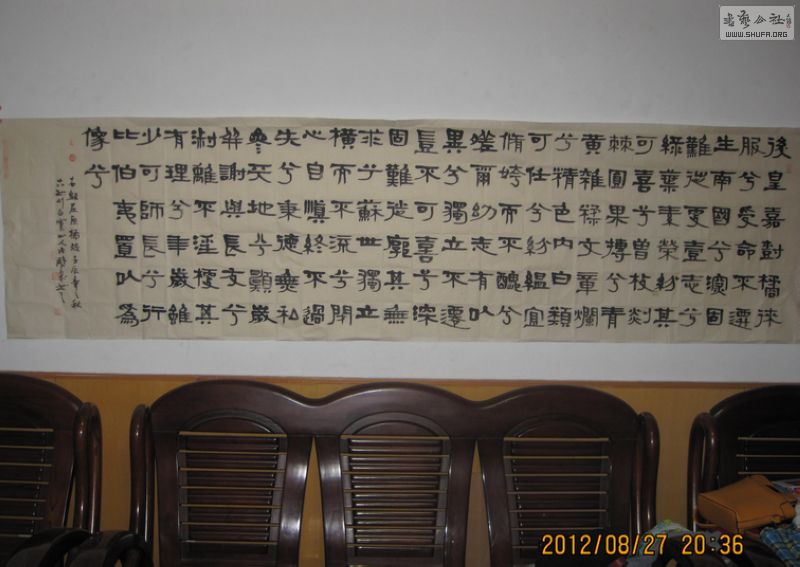 後皇嘉對橘徠
服兮受命不遷
生南國兮深固
難徙更壹志兮
綠葉素榮紛其
可喜兮曾枝剡
棘圓果摶兮青
黃雜糅文章爛
兮精色內白類
可任兮紛緼宜
脩姱而不醜兮
嗟爾幼志有以
異兮獨立不遷
豈不可喜兮深
固難徙廓其無
求兮蘇世獨立
橫而不流兮閉
心自慎終不過
失兮秉德無私
參天地兮願歲
并謝與長友兮
淑離不淫梗其
有理兮年歲雖
少可師長兮行
比伯夷置以為
像兮
屈原橘頌壬辰年之秋
書藝公社
WWW.SHUFA.ORG
2012/08/27 20:36